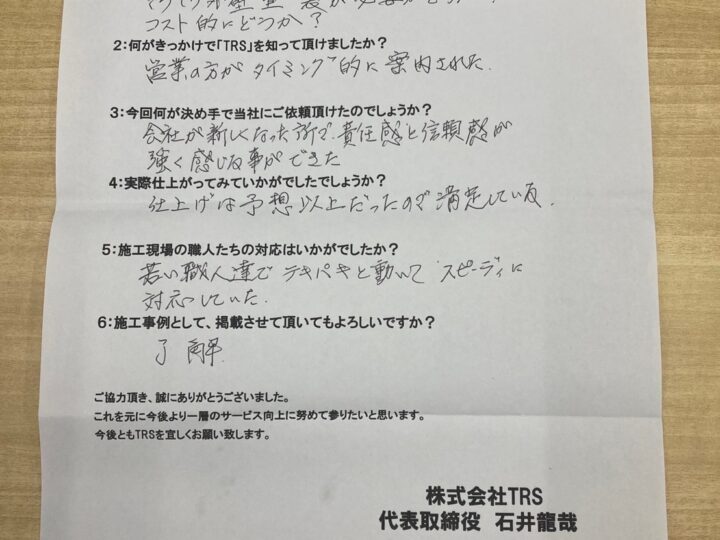 コスト的にどうか？
2：何がきっかけで「TRS」を知って頂けましたか？
営業の方がタイミング的に案内された.
3：今回何が決め手で当社にご依頼頂けたのでしょうか？
会社が新しくなった所で、責任感と信頼感が
強く感じる事ができた
4：実際仕上がってみていかがでしたでしょうか？
仕上げは予想以上だったので満足している.
5：施工現場の職人たちの対応はいかがでしたか？
若い職人達でテキパキと動いてスピーディに
対応していた.
6：施工事例として、掲載させて頂いてもよろしいですか？
了解.
ご協力頂き、誠にありがとうございました。
これを元に今後より一層のサービス向上に努めて参りたいと思います。
今後ともTRSを宜しくお願い致します。
株式会社TRS
代表取締役 石井龍哉